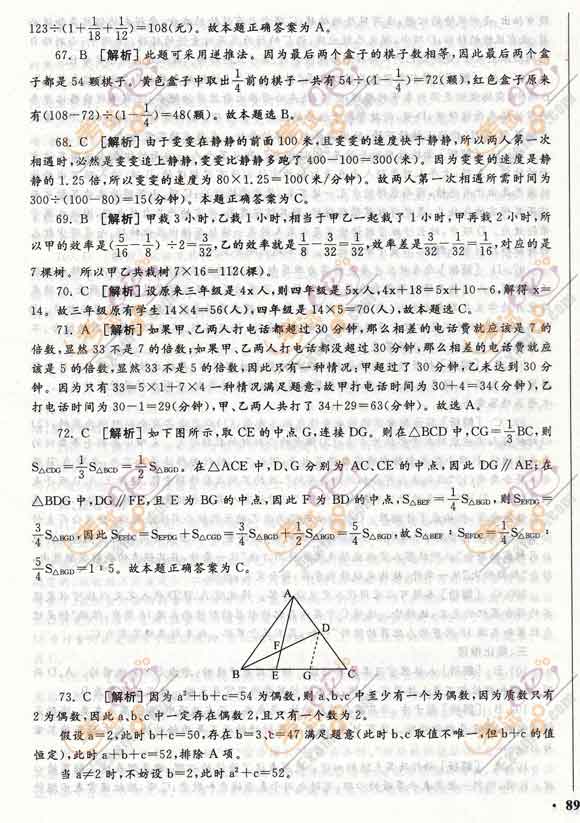 123÷(1+1/18+1/12)=108(元)。故本题正确答案为 A。
67. B [解析]此题可采用逆推法。因为最后两个盒子的棋子数相等,因此最后两个盒
子都是 54 颗棋子。黄色盒子中取出1/4前的棋子一共有 54÷(1−1/4)=72(颗),红色盒子原来
有(108−72)÷(1−1/4)=48(颗)。故本题选 B。
68. C [解析]由于雯雯在静静的前面 100 米,且雯雯的速度快于静静,所以两人第一次
相遇时,必然是雯雯追上静静,雯雯比静静多跑了 400−100=300(米)。因为雯雯的速度是静
静的 1.25 倍,所以雯雯的速度为 80×1.25=100(米/分钟)。故两人第一次相遇所需时间为
300÷(100−80)=15(分钟)。本题正确答案为 C。
69. B [解析]甲栽 3 小时,乙栽 1 小时,相当于甲乙一起栽了 1 小时,甲再栽 2 小时,所
以甲的效率是(5/16−1/8)÷2=3/32,乙的效率就是1/8−3/32=1/32,效率差是3/32−1/32=1/16,对应的是
7 棵树。所以甲乙共栽树 7×16=112(棵)。
70. C [解析]设原来三年级是 4x 人,则四年级是 5x 人,4x+18=5x+10−6,解得 x=
14。故三年级原有学生 14×4=56(人),四年级是 14×5=70(人),故本题选 C。
71. A [解析]如果甲、乙两人打电话都超过 30 分钟,那么相差的电话费就应该是 7 的
倍数,显然 33 不是 7 的倍数;如果甲、乙两人打电话都没超过 30 分钟,那么相差的电话费就应
该是 5 的倍数,显然 33 不是 5 的倍数,因此只有一种情况:甲超过了 30 分钟,乙未达到 30 分
钟。因为只有 33=5×1+7×4 一种情况满足题意,故甲打电话时间为 30+4=34(分钟),乙
打电话时间为 30−1=29(分钟),甲、乙两人共打了 34+29=63(分钟)。故选 A。
72. C [解析]如下图所示,取 CE 的中点 G,连接 DG。则在△BCD 中,CG=1/3BC,则
S△CDG=1/3S△BCD=1/2S△BGD。在△ACE 中,D、G 分别为 AC、CE 的中点,因此 DG∥AE;在
△BDG 中,DG∥FE,且 E 为 BG 的中点,因此 F 为 BD 的中点,S△BEF=1/4S△BGD,则SEFDG=
3/4S△BGD,因此 SEFDC=SEFDG+S△CGD=3/4S△BGD+1/2S△BGD=5/4S△BGD,故 S△BEF:SEFDC=1/4S△BGD:
5/4S△BGD=1:5。故本题答案为 C。
A
D
F
B E G C
73. C [解析]因为 a²+b+c=54 为偶数,则 a、b、c 中至少有一个为偶数,因为质数只有
2 为偶数,因此 a、b、c 中一定存在偶数 2,且只有一个数为 2。
假设 a=2,此时 b+c=50,存在 b=3,c=47 满足题意(此时 b、c 取值不唯一,但 b+c 的值
恒定),此时 a+b+c=52,排除 A 项。
当 a≠2 时,不妨设 b=2,此时 a²+c=52。
· 89